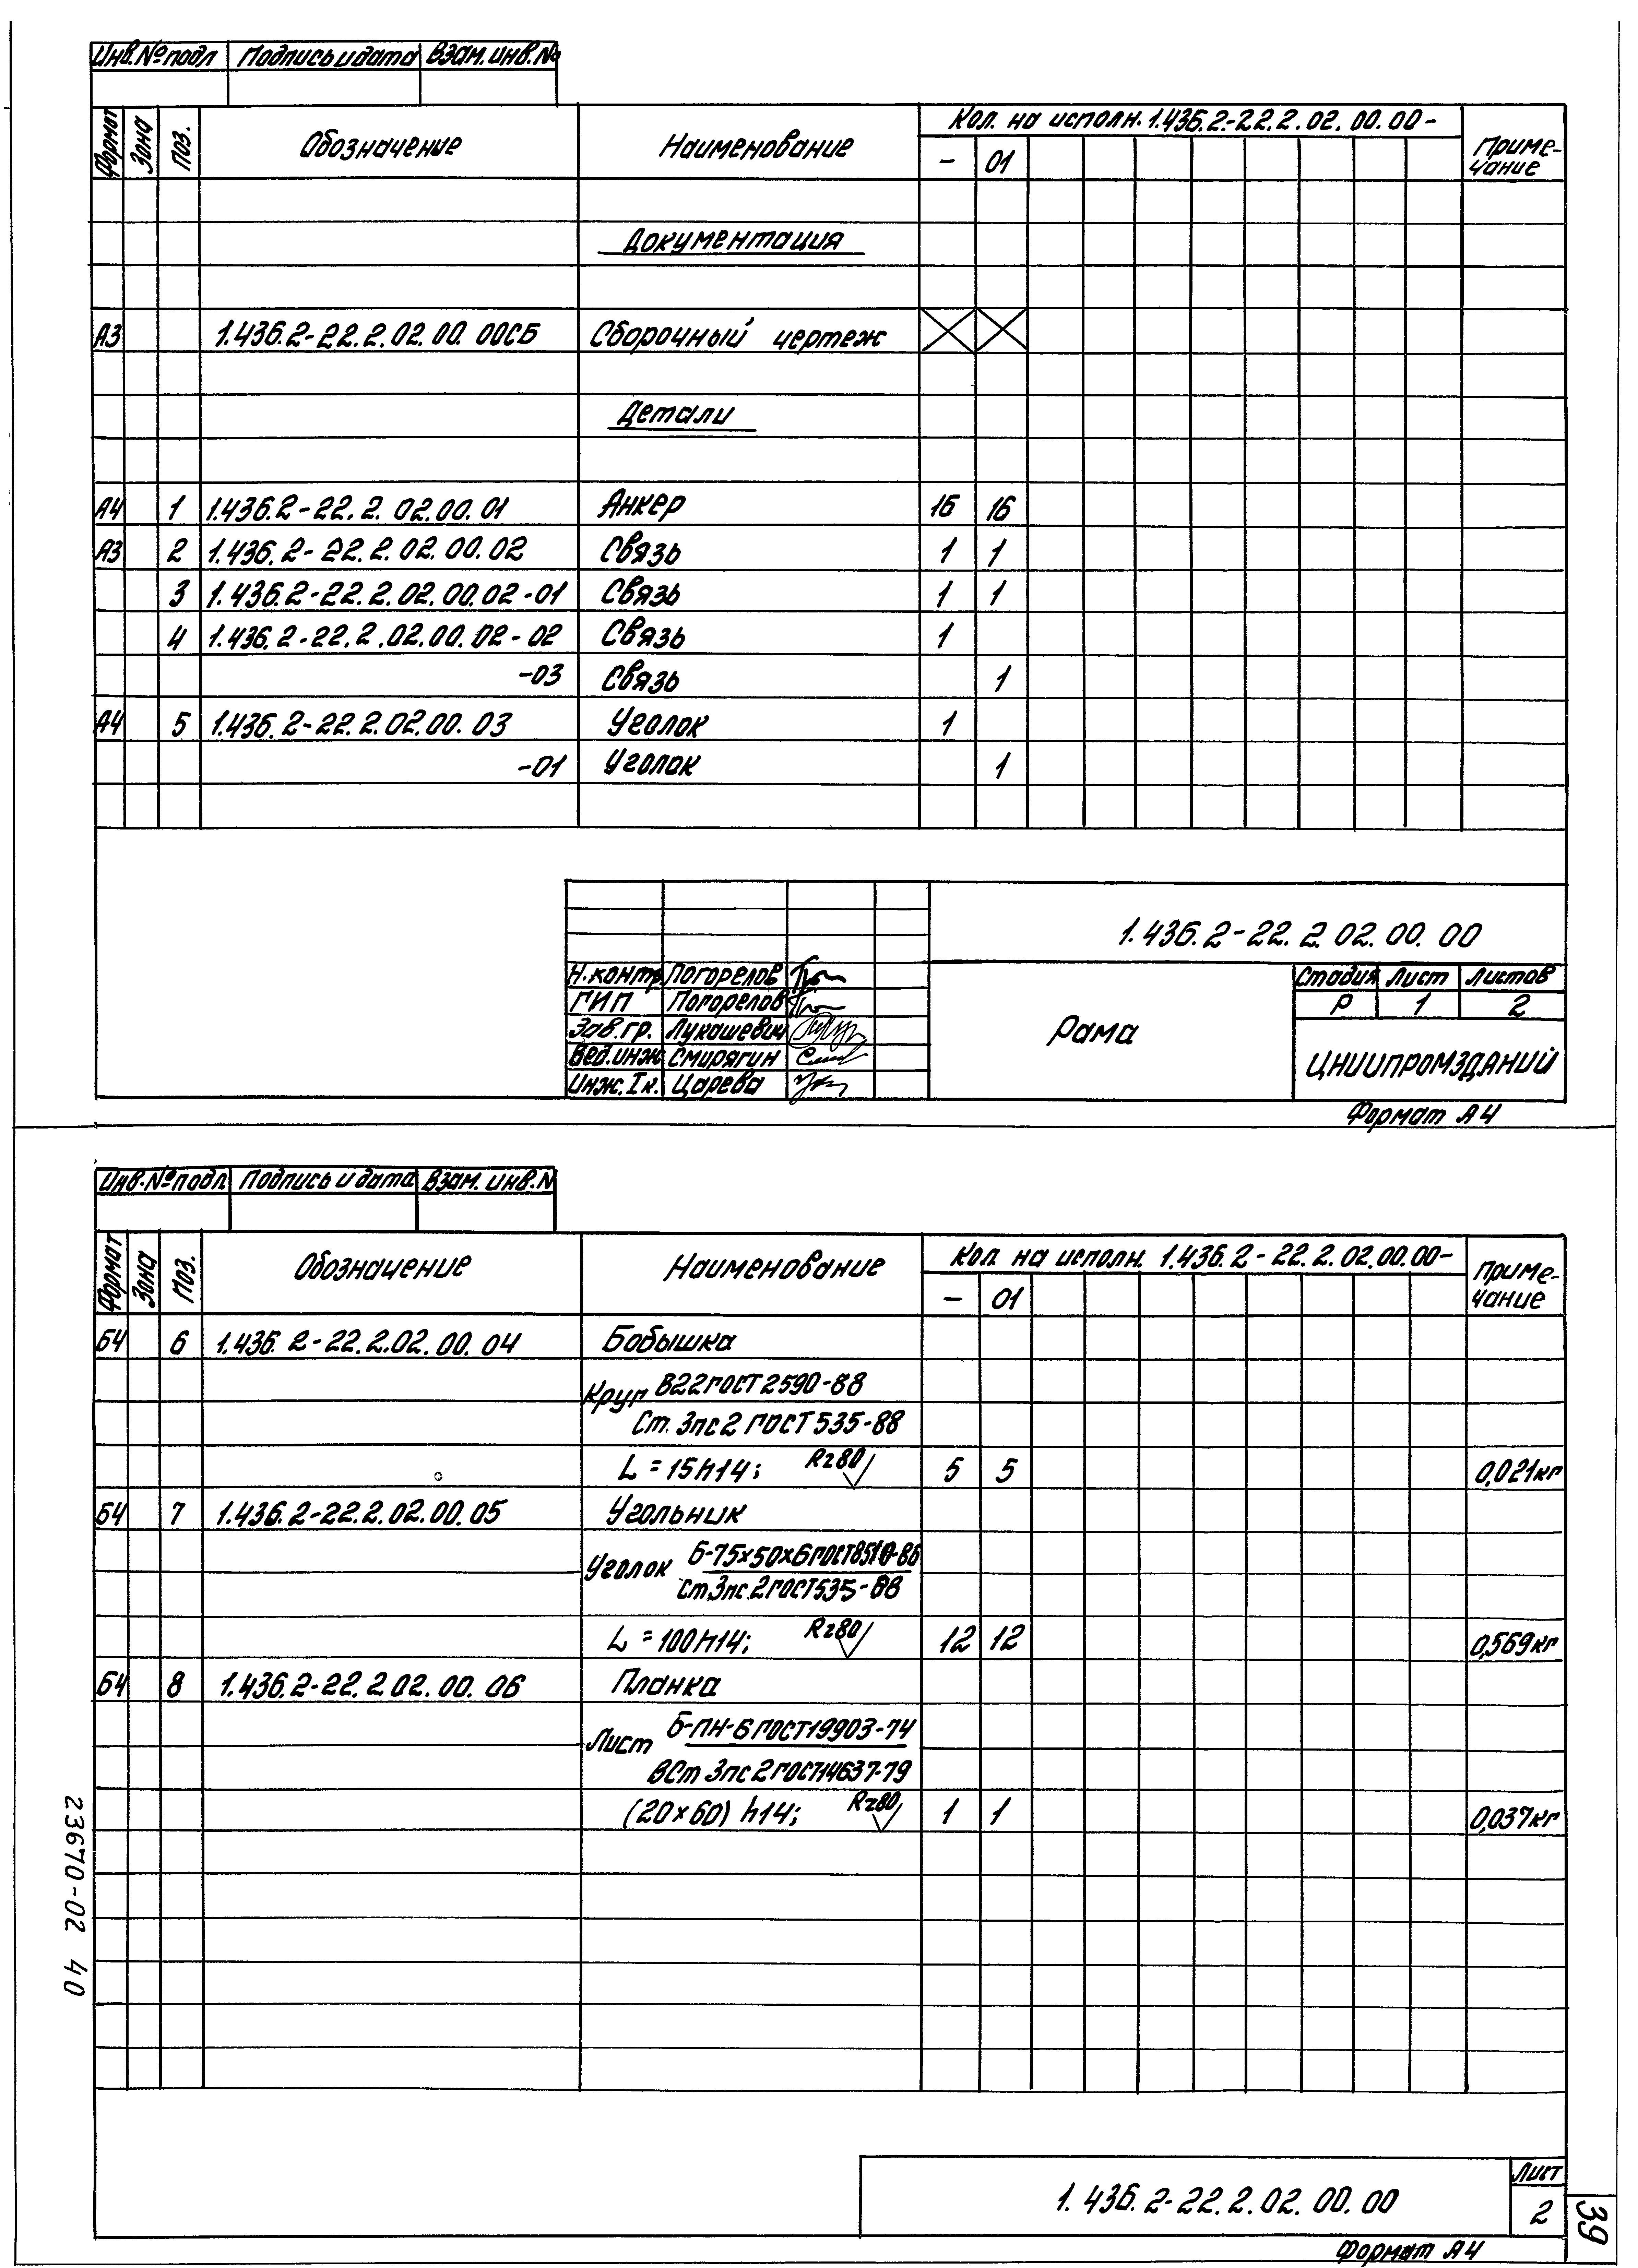 Инв.№подл Подпись и дата Взам.инв.№
Формат Зона Поз. Обозначение Наименование Кол. на исполн. 1.436.2-22.2.02.00.00- Приме-
чание
- 01
Документация
А3 1.436.2-22.2.02.00.00СБ Сборочный чертеж
Детали
А4 1 1.436.2-22.2.02.00.01 Анкер 16 16
А3 2 1.436.2-22.2.02.00.02 Связь 1 1
3 1.436.2-22.2.02.00.02-01 Связь 1 1
4 1.436.2-22.2.02.00.02-02 Связь 1
-03 Связь 1
А4 5 1.436.2-22.2.02.00.03 Уголок 1
-01 Уголок 1
1.436.2-22.2.02.00.00
Н.контр. Погорелов
ГИП Погорелов
Зав.гр. Лукашевич
Вед.инж Смирягин
Инж.Iк. Царева
Рама
Стадия Лист Листов
Р 1 2
ЦНИИПРОМЗДАНИЙ
Формат А4
Инв.№подл Подпись и дата Взам.инв.№
Формат Зона Поз. Обозначение Наименование Кол. на исполн. 1.436.2-22.2.02.00.00- Приме-
чание
- 01
Б4 6 1.436.2-22.2.02.00.04 Бобышка
Круг В22 ГОСТ 2590-88
Ст.3пс2 ГОСТ 535-88
L=15h14; Rz80 5 5 0,021кг
Б4 7 1.436.2-22.2.02.00.05 Угольник
Уголок Б-75х50х6 ГОСТ 8510-86
Ст.3пс2 ГОСТ 535-88
L=100h14; Rz80 12 12 0,569кг
Б4 8 1.436.2-22.2.02.00.06 Планка
Лист Б-ПН-6 ГОСТ 19903-74
ВСт3пс2 ГОСТ 14637-79
(20х60) h14; Rz80 1 1 0,037кг
23670-02 40
1.436.2-22.2.02.00.00
Лист
2
39
Формат А4